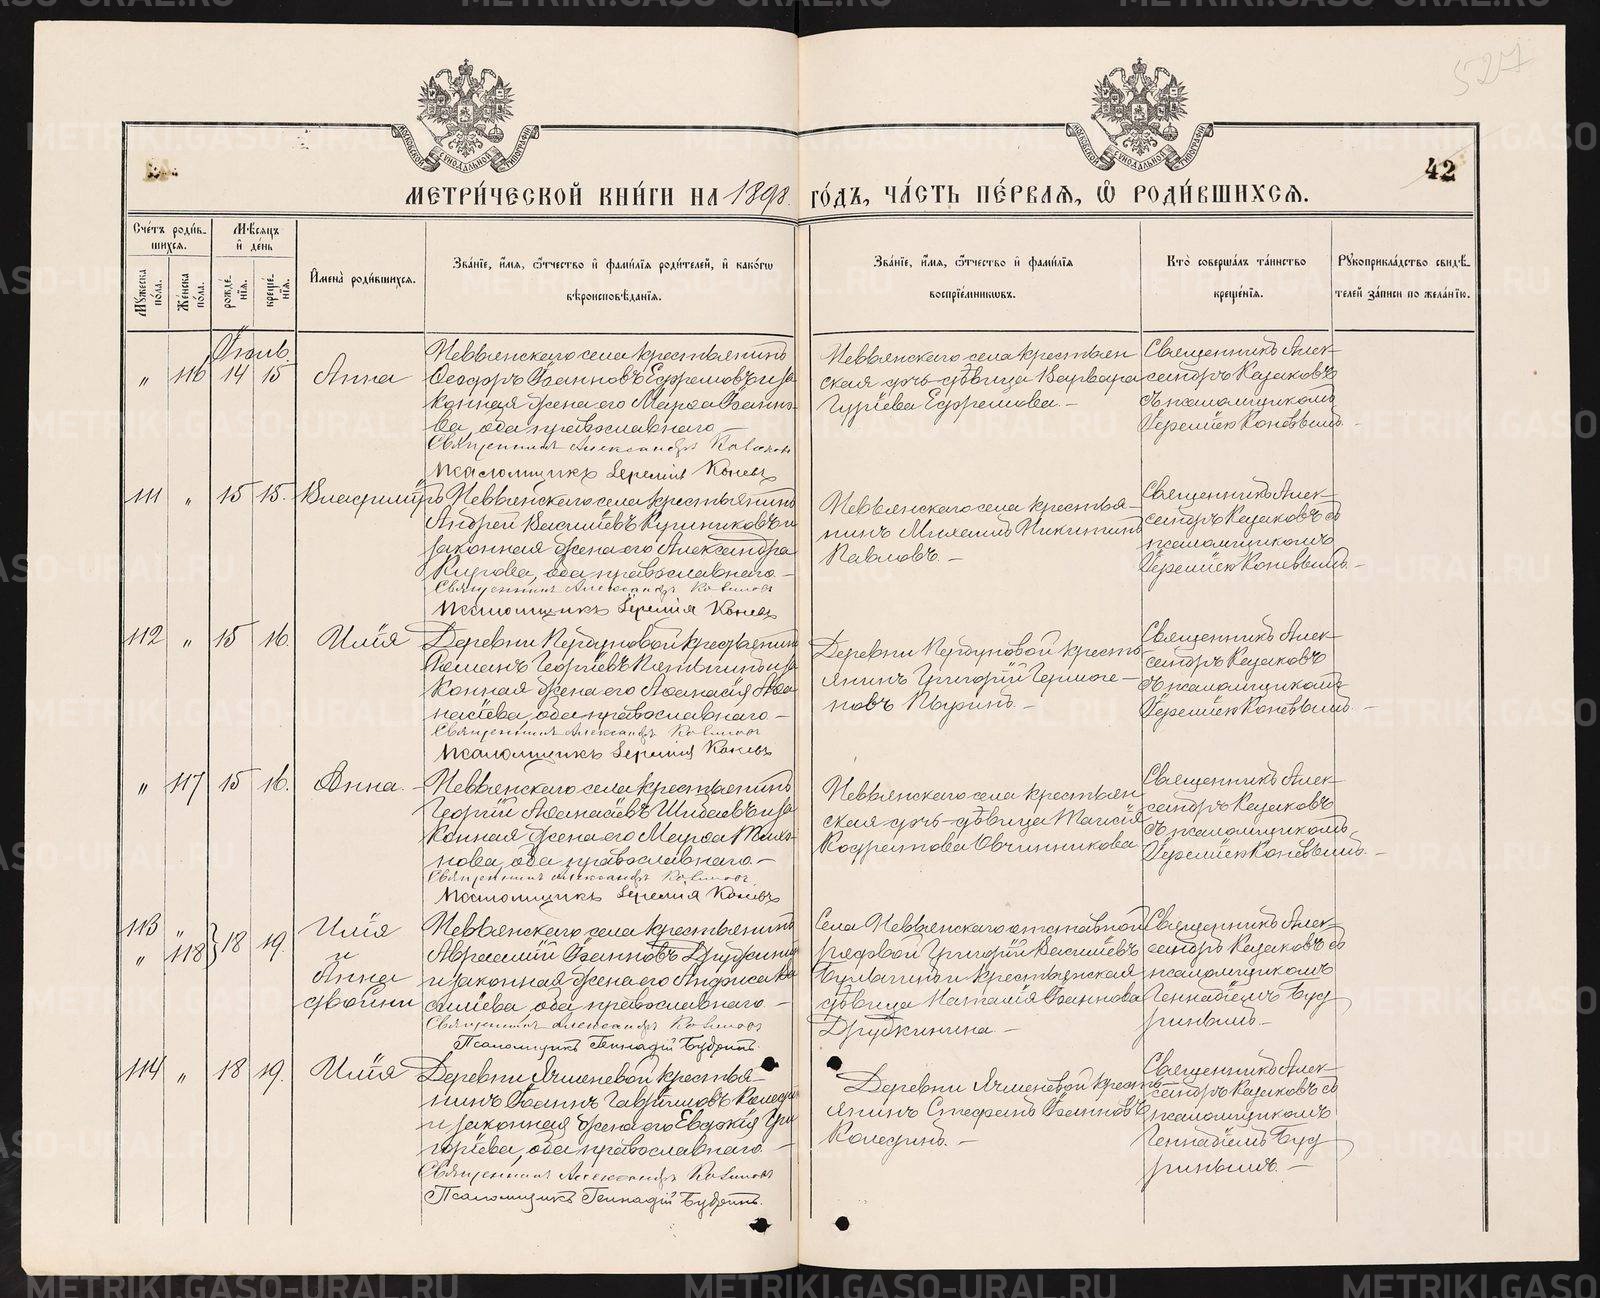 527
42
МЕТРИ́ЧЕСКОЙ КНИ́ГИ НА 1898. ГО́ДЪ, ЧА́СТЬ ПЕ́РВАЯ, Ѽ РОДИ́ВШИХСЯ.
Сче́тъ роди́в-
шихся.
Мѣ́сяцъ
и҆ де́нь
Му́жеска по́ла.
Же́нска по́ла.
рожде́-
нїя.
креще́-
нїя.
И҆мена̀ роди́вшихся.
Зва́нїе, и҆́мя, ѻ҆́тчество и҆ фами́лїя роди́телей, и҆ како́гѡ
вѣроисповѣ́данїя.
Зва́нїе, и҆́мя, ѻ҆́тчество и҆ фами́лїя
воспрїе́мникѡвъ.
Кто̀ соверша́лъ та́инство
креще́нїя.
Рꙋкоприкла́дство свидѣ́-
телей за́писи по жела́нїю.
Іюль.
" 116 14 15 Анна
Невьянскаго села крестьянинъ
Ѳеодоръ Іоанновъ Ефремовъ и за
конная жена его Марѳа Іоанно-
ва, оба православнаго.—
Священникъ Александръ Казаковъ
Псаломщикъ Іеремія Коневъ
Невьянскаго села крестьян
ская дочь дѣвица Варвара
Гурїева Ефремова.—
Священникъ Алек-
сандръ Казаковъ
съ псаломщикомъ
Іереміею Коневымъ.—
111 " 15 15. Владиміръ
Невьянскаго села крестьянинъ
Андрей Василїевъ и
законная жена его Александра
Кирова, оба православнаго.—
Священникъ Александръ Казаковъ
Псаломщикъ Іеремія Коневъ
Невьянскаго села крестья-
нинъ Михаилъ Никитинъ
Павловъ.—
Священникъ Алек-
сандръ Казаковъ съ
псаломщикомъ
Іереміею Коневымъ.—
112 " 15 16. Илїя
Деревни крестьянинъ
Георгїевъ и за
конная жена его Аѳанасїя Аѳа
насїева, оба православнаго—
Священникъ Александръ Казаковъ
Псаломщикъ Іеремія Коневъ
Деревни кресть-
янинъ Григорій Гермоге-
новъ.—
Священникъ Алек-
сандръ Казаковъ
съ псаломщикомъ
Іереміею Коневымъ.—
" 117 15 16. Анна.
Невьянскаго села крестьянинъ
Георгій Аѳанасїевъ и за
конная жена его Марѳа Тихо-
нова, оба православнаго.—
Священникъ Александръ Казаковъ
Псаломщикъ Іеремія Коневъ
Невьянскаго села крестьян
ская дочь дѣвица Таисїя
Кодратова Овчинникова
Священникъ Алек-
сандръ Казаковъ
съ псаломщикомъ
Іереміею Коневымъ.—
113 " Илїя
" 118 } 18 19. и
Анна
двойни
Невьянскаго села крестьянинъ
Авраамій Іоанновъ Дружининъ
и законная жена его Анфиса Ва
силїева, оба православнаго.—
Священникъ Александръ Казаковъ
Псаломщикъ Геннадій Будринъ.
Села Невьянскаго отставной
рядовой Григорій Василїевъ
и крестьянская
дѣвица Наталїя Іоаннова
Дружинина.—
Священникъ Алек-
сандръ Казаковъ съ
псаломщикомъ
Геннадїемъ Буд
ринымъ.—
114 " 18 19. Илїя
Деревни Ячменевой крестья-
нинъ Іоаннъ Гавриловъ
и законная жена его Евдокїя Гри
горїева, оба православнаго.—
Священникъ Александръ Казаковъ
Псаломщикъ Геннадій Будринъ.
Деревни Ячменевой кресть-
янинъ Стефанъ Іоанновъ
Священникъ Алек-
сандръ Казаковъ съ
псаломщикомъ
Геннадїемъ Буд
ринымъ.—
METRIKI.GASO-URAL.RU